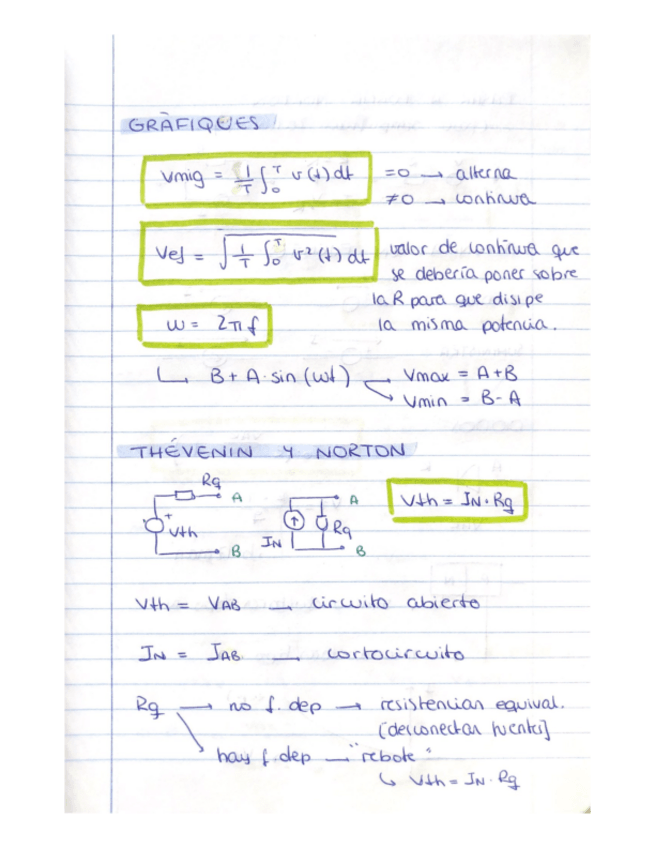 GRÀFIQUES
Vmig = 1/T ∫₀ᵀ v(t) dt
=0 → alterna
≠0 → continua
Vef = √(1/T ∫₀ᵀ v²(t)) dt
valor de continua que
se debería poner sobre
la R para que disipe
la misma potencia.
ω = 2π f
↳ B + A · sin (ωt)
→ Vmax = A+B
→ Vmin = B-A
THÉVENIN Y NORTON
Rg
A
+
Vth
B
A
IN
Rg
B
Vth = IN · Rg
Vth = VAB → circuito abierto
IN = IAB → cortocircuito
Rg → no f. dep → resistencian equival.
[desconectar fuentes]
hay f. dep → "rebote"
↳ Vth = IN · Rg